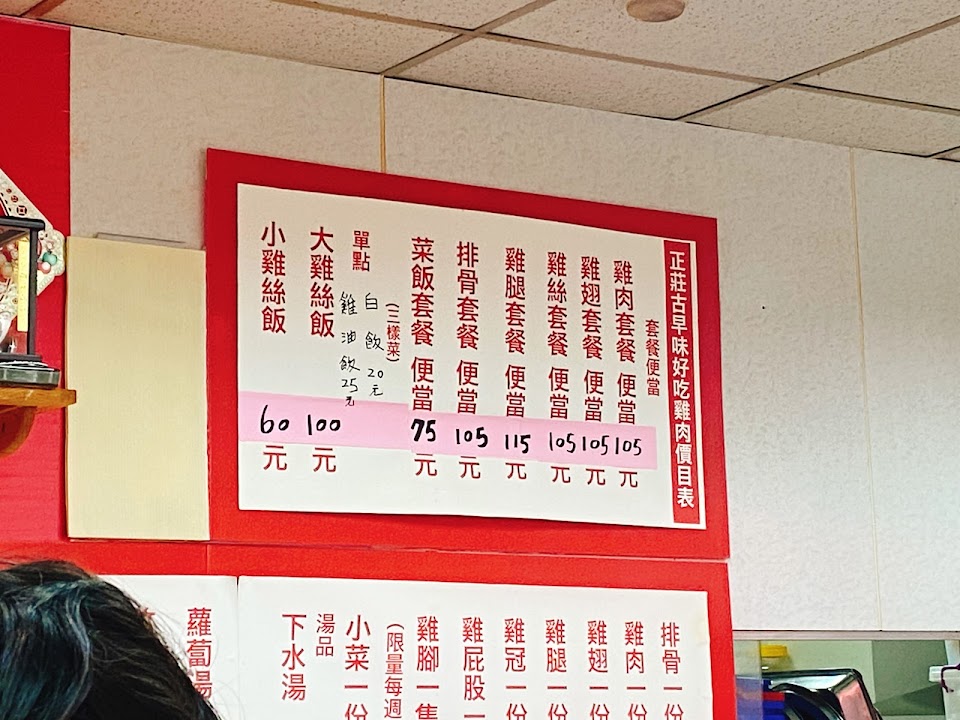 正莊古早味好吃雞肉價目表
套餐便當
雞肉套餐 便當 105 元
雞翅套餐 便當 105 元
雞絲套餐 便當 105 元
雞腿套餐 便當 115 元
排骨套餐 便當 105 元
菜飯套餐 便當 75 元
(三樣菜)
單點
白飯 20元
雞油飯 25元
大雞絲飯 100 元
小雞絲飯 60 元
排骨一份
雞肉一份
雞翅一份
雞腿一份
雞冠一份
雞屁股一
雞腳一隻
(限量每週
小菜一份
湯品
下水湯
蘿蔔湯